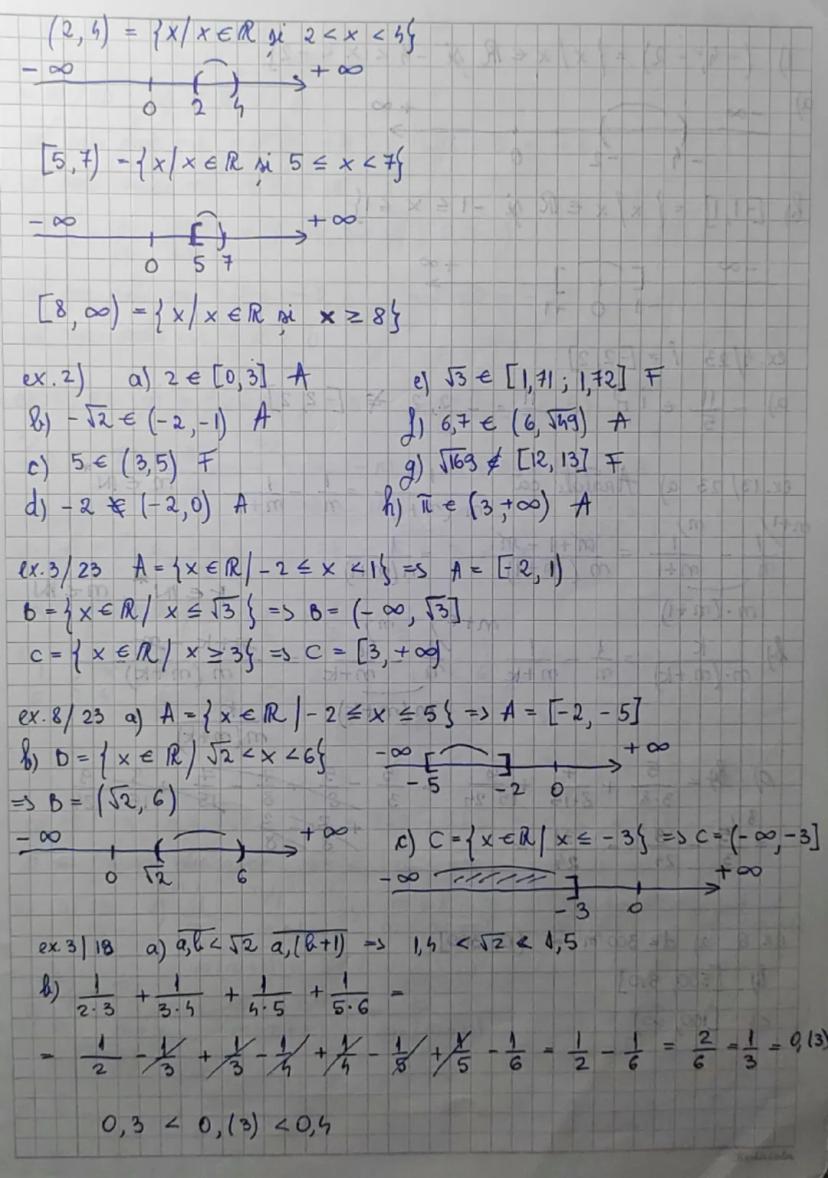 (2,4) = {x/x ∈ ℝ și 2 < x < 4}
- ∞ + ∞
0 2 4
[5,7) = {x/x ∈ ℝ și 5 ≤ x < 7}
- ∞ + ∞
0 5 7
[8, ∞) = {x/x ∈ ℝ și x ≥ 8}
ex. 2) a) 2 ∈ [0,3] A e) √3 ∈ [1,71 ; 1,72] F
b) -√2 ∈ (-2,-1) A f) 6,7 ∈ (6, √49) A
c) 5 ∈ (3,5) F g) √169 ∉ [12, 13] F
d) -2 ∉ (-2,0) A h) π ∈ (3, +∞) A
ex. 3/23 A = {x ∈ ℝ/ -2 ≤ x < 1} => A = [-2, 1)
B = {x ∈ ℝ/ x ≤ √3} => B = (-∞, √3]
C = {x ∈ ℝ/ x ≥ 3} => C = [3, +∞)
ex. 8/23 a) A = {x ∈ ℝ / -2 ≤ x ≤ 5} => A = [-2, -5]
- ∞ + ∞
-5 -2 0
b) B = {x ∈ ℝ/ √2 < x < 6}
=> B = (√2, 6)
- ∞ + ∞
0 √2 6
c) C = {x ∈ ℝ/ x ≤ -3} => C = (-∞, -3]
- ∞ + ∞
-3 0
ex 3/18 a) a,b < √2 a,(b+1) => 1,4 < √2 < 1,5
b) 1/2·3 + 1/3·4 + 1/4·5 + 1/5·6 =
= 1/2 - 1/3 + 1/3 - 1/4 + 1/4 - 1/5 + 1/5 - 1/6 = 1/2 - 1/6 = 2/6 = 1/3 = 0,(3)
0,3 < 0,(3) < 0,4